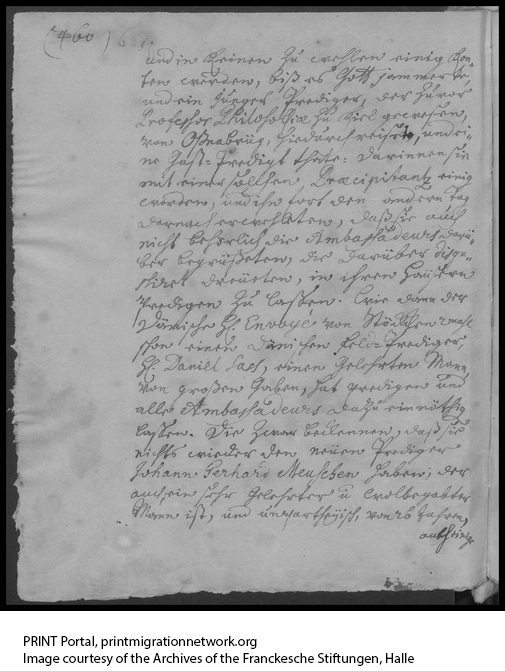 (460)
und in keinen zu erwehlen einig kon-
ten werden, biß es Gott jammerte,
und ein junger Prediger, der zuvor
Professor Philosophiæ zu Kiel gewesen,
von Oßnabrüg, hiedurch reisete, und ei-
ne Gast-Predigt thäte: darinnen sie
mit einer sollchen Præcipitantz einig
worden, und ihn fort den andern Tag
darnach erwehleten, daß sie auch
nicht behörlich die Ambassadeurs darü-
ber begrüsseten, die darüber disgu-
stiret dreueten, in ihren Häusern
Predigen zu lassen. Wie dann der
Dänische H. Envoyé von Stöcken
schon einen Dänischen Feld-Prediger
H. Daniel, einen gelehrten Mann
von großen Gaben, hat predigen und
alle Ambassadeurs dazu einnöthig
lassen. Die zwar bekennen, daß sie
nichts wieder den neuen Prediger
Johann Gerhard Meuschen haben, der
auch ein sehr gelehrter u. wolbegabter
Mann ist, und von 26 Jahren,
PRINT Portal, printmigrationnetwork.org
Image courtesy of the Archives of the Franckesche Stiftungen, Halle